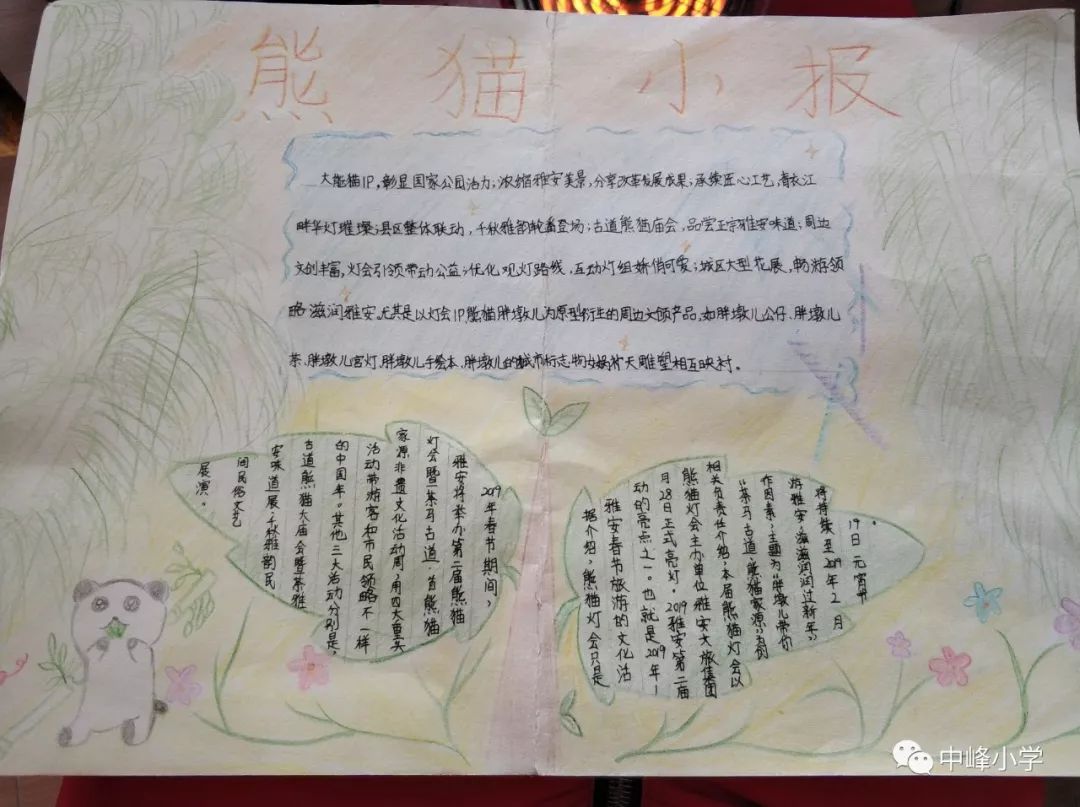 熊猫小报
大熊猫IP,彰显国家公园活力;浓缩雅安美景,分享改革发展成果;承续匠心工艺,青衣江
畔华灯璀璨;县区整体联动,千秋雅韵轮番登场;古道熊猫庙会,品尝正宗雅安味道;周边
文创丰富,灯会引领带动公益;优化观灯路线,互动灯组娇俏可爱;城区大型花展,畅游领
略滋润雅安。尤其是以灯会IP熊猫胖墩儿为原型衍生的周边文颂产品,如胖墩儿公仔、胖墩儿
茶、胖墩儿宫灯、胖墩儿手绘本、胖墩儿的城市标志物女娲补天雕塑相互映衬。
2019年春节期间,
雅安将举办第二届熊猫
灯会暨"茶马古道·首熊猫
家源"非遗文化活动周,用四大重头
活动带游客和市民领略不一样
的中国年。其他三大活动分别是:
古道熊猫大庙会暨茶雅
安味道展、千秋雅韵民
间民俗文艺
展演。
据介绍,熊猫灯会只是
雅安春节旅游的文化活
动的亮点之一。也就是2019年1
月28日正式亮灯。2019雅安第二届
熊猫灯会主办单位雅安大旅集团
相关负责任介绍,本届熊猫灯会以
"茶马古道·熊猫家源"为创
作因素,主题为"胖墩儿带你
游雅安·滋滋润润过新年",
将持续至2019年2月
19日元宵节。
中峰小学